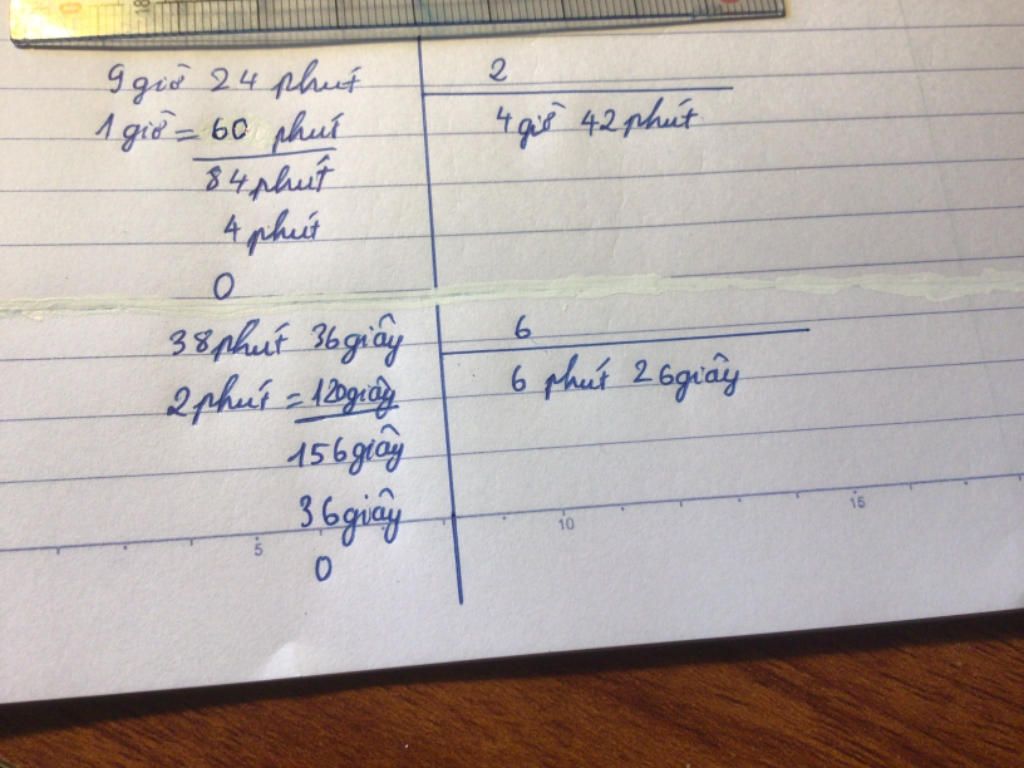 9 giờ 24 phút 2
1 giờ = 60 phút 4 giờ 42 phút
84 phút
4 phút
0
38 phút 36 giây 6
2 phút = 120 giây 6 phút 26 giây
156 giây
36 giây
0
5 10 15